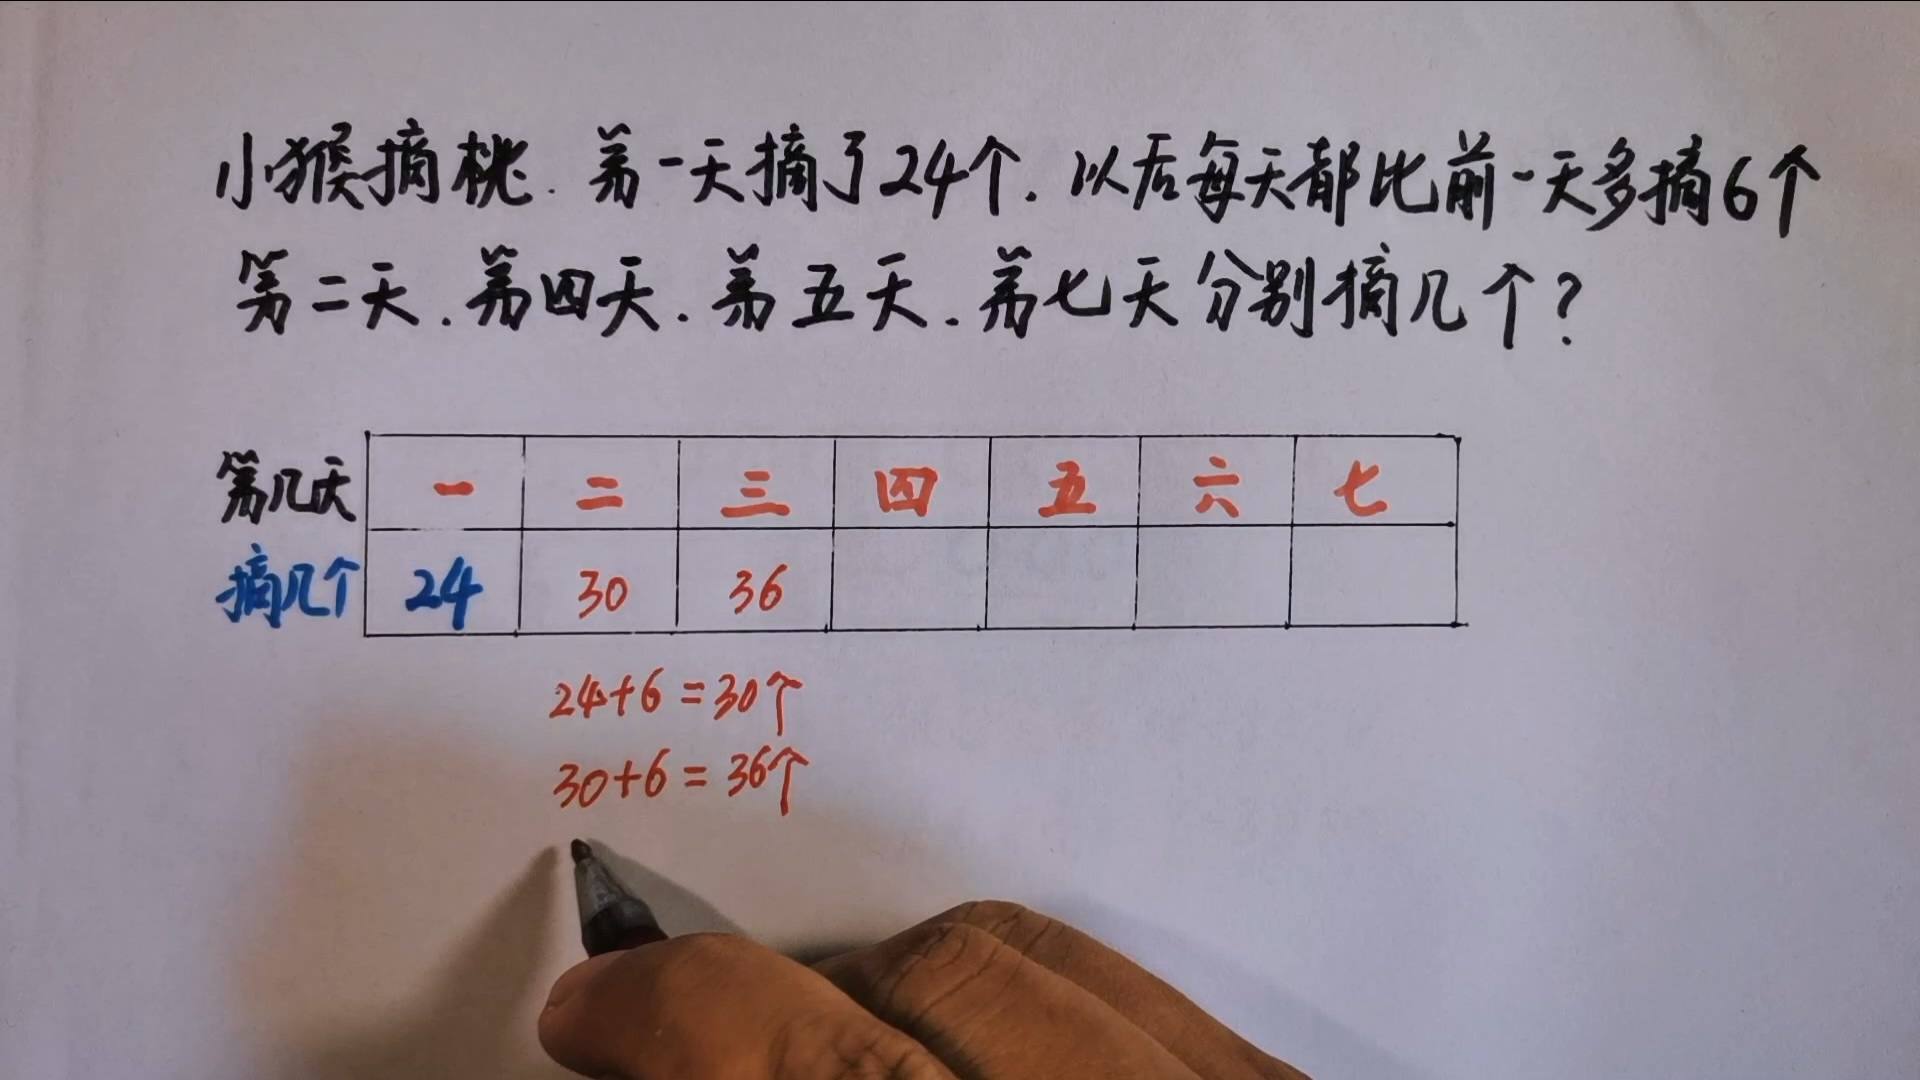 小猴摘桃.第一天摘了24个.以后每天都比前一天多摘6个
第二天.第四天.第五天.第七天分别摘几个?
第几天 一 二 三 四 五 六 七
摘几个 24 30 36
24+6=30个
30+6=36个